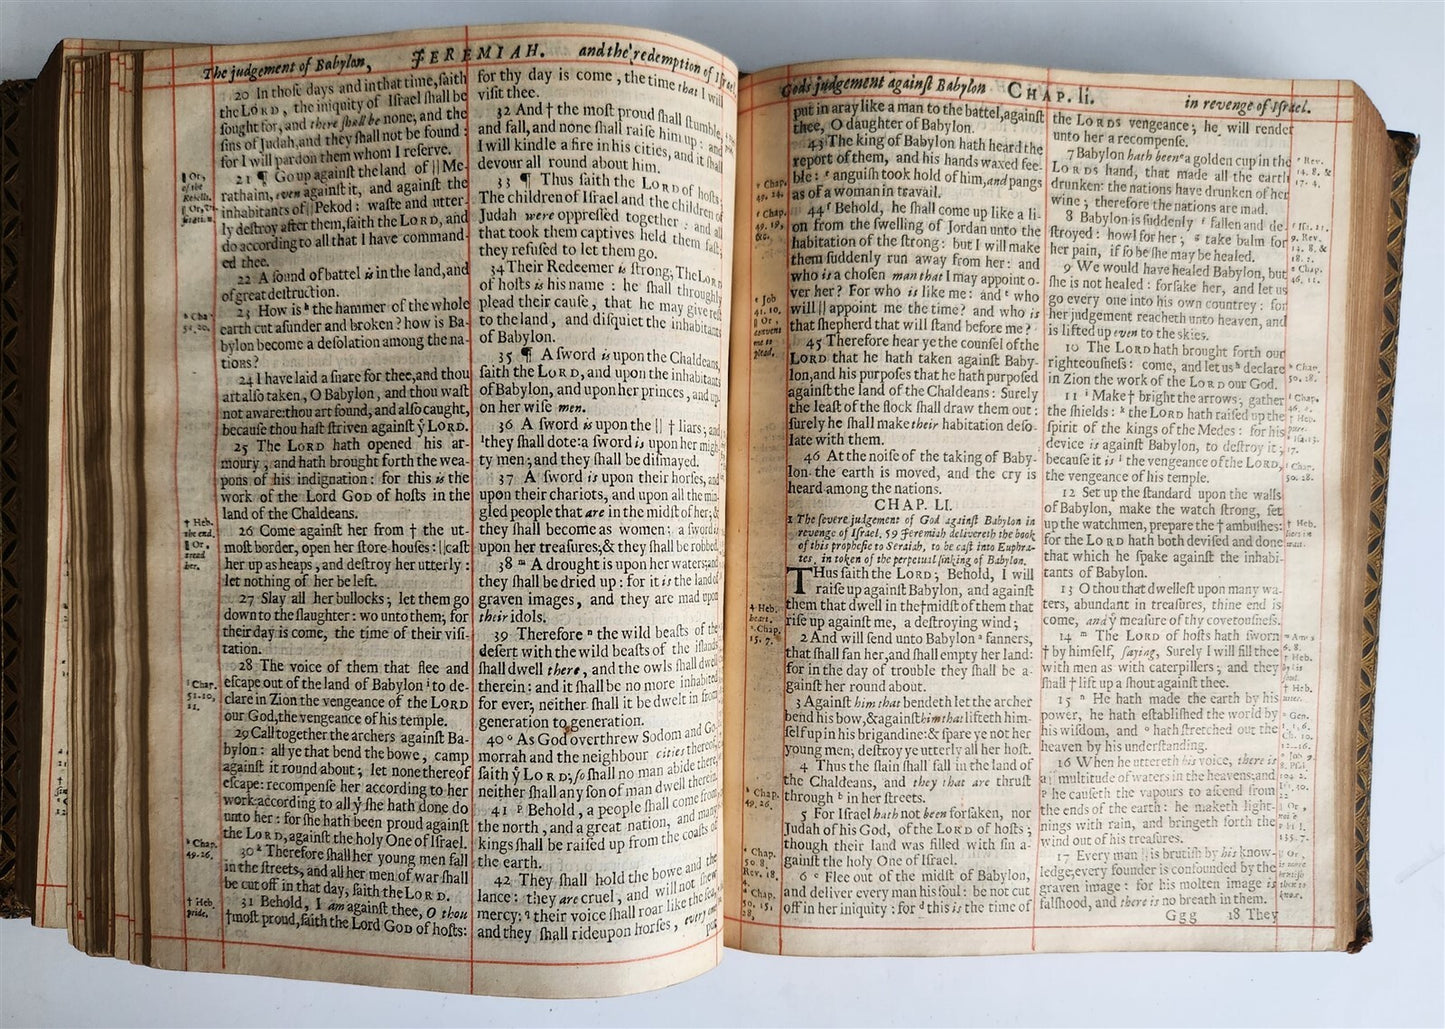 The judgement of Babylon, JEREMIAH. and the redemption of Iſrael.
20 In thoſe days and in that time, ſaith
the LORD, the iniquity of Iſrael ſhall be
ſought for, and there ſhall be none; and the
ſins of Judah, and they ſhall not be found:
for I will pardon them whom I reſerve.
21 ¶ Go up againſt the land of || Me-
rathaim, even againſt it, and againſt the
inhabitants of || Pekod: waſte and utter-
ly deſtroy after them, ſaith the LORD, and
do according to all that I have command-
ed thee.
22 A ſound of battel is in the land, and
of great deſtruction.
23 How is h the hammer of the whole
earth cut aſunder and broken? how is Ba-
bylon become a deſolation among the na-
tions?
24 I have laid a ſnare for thee, and thou
art alſo taken, O Babylon, and thou waſt
not aware: thou art found, and alſo caught,
becauſe thou haſt ſtriven againſt ẏ LORD.
25 The LORD hath opened his ar-
moury, and hath brought forth the wea-
pons of his indignation: for this is the
work of the Lord GOD of hoſts in the
land of the Chaldeans.
26 Come againſt her from † the ut-
moſt border, open her ſtore-houſes: || caſt
her up as heaps, and deſtroy her utterly:
let nothing of her be left.
27 Slay all her bullocks; let them go
down to the ſlaughter: wo unto them, for
their day is come, the time of their viſi-
tation.
28 The voice of them that flee and
eſcape out of the land of Babylon i to de-
clare in Zion the vengeance of the LORD
our God, the vengeance of his temple.
29 Call together the archers againſt Ba-
bylon: all ye that bend the bowe, camp
againſt it round about; let none thereof
eſcape: recompenſe her according to her
work: according to all ẏ ſhe hath done do
unto her: for ſhe hath been proud againſt
the LORD, againſt the holy One of Iſrael.
30 k Therefore ſhall her young men fall
in the ſtreets, and all her men of war ſhall
be cut off in that day, ſaith the LORD.
31 Behold, I am againſt thee, O thou
† moſt proud, ſaith the Lord GOD of hoſts:
for thy day is come, the time that I will
viſit thee.
32 And † the moſt proud ſhall ſtumble,
and fall, and none ſhall raiſe him up: and
I will kindle a fire in his cities, and it ſhall
devour all round about him.
33 ¶ Thus ſaith the LORD of hoſts;
The children of Iſrael and the children of
Judah were oppreſſed together: and all
that took them captives held them faſt;
they refuſed to let them go.
34 Their Redeemer is ſtrong; The LORD
of hoſts is his name: he ſhall throughly
plead their cauſe, that he may give reſt
to the land, and diſquiet the inhabitants
of Babylon.
35 ¶ A ſword is upon the Chaldeans,
ſaith the LORD, and upon the inhabitants
of Babylon, and upon her princes, and up-
on her wiſe men.
36 A ſword is upon the || † liars; and
they ſhall dote: a ſword is upon her migh-
ty men; and they ſhall be diſmayed.
37 A ſword is upon their horſes, and
upon their chariots, and upon all the min-
gled people that are in the midſt of her; &
they ſhall become as women: a ſword is
upon her treaſures; & they ſhall be robbed.
38 m A drought is upon her waters; and
they ſhall be dried up: for it is the land of
graven images, and they are mad upon
their idols.
39 Therefore n the wild beaſts of the
deſert with the wild beaſts of the iſlands
ſhall dwell there, and the owls ſhall dwell
therein: and it ſhall be no more inhabited
for ever; neither ſhall it be dwelt in from
generation to generation.
40 o As God overthrew Sodom and Go-
morrah and the neighbour cities thereof,
ſaith ẏ LORD; ſo ſhall no man abide there,
neither ſhall any ſon of man dwell therein.
41 p Behold, a people ſhall come from
the north, and a great nation, and many
kings ſhall be raiſed up from the coaſts of
the earth.
42 They ſhall hold the bowe and the
lance: they are cruel, and will not ſhew
mercy: q their voice ſhall roar like the ſea,
and they ſhall ride upon horſes, every one
put
|| Or,
of the
Rebells.
|| Or,
h Cha.
51. 20.
† Heb.
the end.
|| Or,
tread
her.
i Chap.
51. 10,
11.
k Chap.
49. 26.
† Heb.
pride.
Gods judgement againſt Babylon CHAP. li. in revenge of Iſrael.
put in aray like a man to the battel, againſt
thee, O daughter of Babylon.
43 The king of Babylon hath heard the
report of them, and his hands waxed fee-
ble: e anguiſh took hold of him, and pangs
as of a woman in travail.
44 f Behold, he ſhall come up like a li-
on from the ſwelling of Jordan unto the
habitation of the ſtrong: but I will make
them ſuddenly run away from her: and
who is a choſen man that I may appoint o-
ver her? For who is like me: and t who
will || appoint me the time? and who is
that ſhepherd that will ſtand before me?
45 Therefore hear ye the counſel of the
LORD that he hath taken againſt Baby-
lon, and his purpoſes that he hath purpoſed
againſt the land of the Chaldeans: Surely
the leaſt of the flock ſhall draw them out:
ſurely he ſhall make their habitation deſo-
late with them.
46 At the noiſe of the taking of Baby-
lon the earth is moved, and the cry is
heard among the nations.
CHAP. LI.
1 The ſevere judgement of God againſt Babylon in
revenge of Iſrael. 59 Jeremiah delivereth the book
of this propheſie to Seraiah, to be caſt into Euphra-
tes, in token of the perpetual ſinking of Babylon.
THus ſaith the LORD; Behold, I will
raiſe up againſt Babylon, and againſt
them that dwell in the † midſt of them that
riſe up againſt me, a deſtroying wind;
2 And will ſend unto Babylon a fanners,
that ſhall fan her, and ſhall empty her land:
for in the day of trouble they ſhall be a-
gainſt her round about.
3 Againſt him that bendeth let the archer
bend his bow, & againſt him that lifteth him-
ſelf up in his brigandine: & ſpare ye not her
young men; deſtroy ye utterly all her hoſt.
4 Thus the ſlain ſhall fall in the land of
the Chaldeans, and they that are thruſt
through b in her ſtreets.
5 For Iſrael hath not been forſaken, nor
Judah of his God, of the LORD of hoſts;
though their land was filled with ſin a-
gainſt the holy One of Iſrael.
6 c Flee out of the midſt of Babylon,
and deliver every man his ſoul: be not cut
off in her iniquity: for d this is the time of
the LORDS vengeance; he will render
unto her a recompenſe.
7 Babylon hath been e a golden cup in the
LORDS hand, that made all the earth
drunken: the nations have drunken of her
wine; therefore the nations are mad.
8 Babylon is ſuddenly f fallen and de-
ſtroyed: howl for her; g take balm for
her pain, if ſo be ſhe may be healed.
9 We would have healed Babylon, but
ſhe is not healed: forſake her, and let us
go every one into his own countrey: for
her judgement reacheth unto heaven, and
is lifted up even to the skies.
10 The LORD hath brought forth our
righteouſneſs: come, and let us h declare
in Zion the work of the LORD our God.
11 i Make † bright the arrows; gather
the ſhields: k the LORD hath raiſed up the
ſpirit of the kings of the Medes: for his
device is againſt Babylon, to deſtroy it;
becauſe it is l the vengeance of the LORD,
the vengeance of his temple.
12 Set up the ſtandard upon the walls
of Babylon, make the watch ſtrong, ſet
up the watchmen, prepare the † ambuſhes:
for the LORD hath both deviſed and done
that which he ſpake againſt the inhabi-
tants of Babylon.
13 O thou that dwelleſt upon many wa-
ters, abundant in treaſures, thine end is
come, and ẏ meaſure of thy covetouſneſs.
14 m The LORD of hoſts hath ſworn
† by himſelf, ſaying, Surely I will fill thee
with men as with caterpillers; and they
ſhall † lift up a ſhout againſt thee.
15 n He hath made the earth by his
power, he hath eſtabliſhed the world by
his wiſdom, and o hath ſtretched out the
heaven by his underſtanding.
16 When he uttereth his voice, there is
a || multitude of waters in the heavens; and
p he cauſeth the vapours to aſcend from
the ends of the earth: he maketh light-
nings with rain, and bringeth forth the
wind out of his treaſures.
17 Every man || is brutiſh by his know-
ledge; every founder is confounded by the
graven image: for his molten image is
falſhood, and there is no breath in them.
Ggg 18 They
e Chap.
49. 24.
f Chap.
49. 19,
&c.
t Job
41. 10.
|| Or,
convent
me to
plead.
† Heb.
heart.
a Chap.
15. 7.
b Chap.
49. 26.
c Chap.
50. 8.
Rev. 18.
4.
d Chap.
50. 15,
28,
e Rev.
14. 8. &
17. 4.
f Iſa. 21.
9. Rev.
14. 8. &
18. 2.
g Chap.
46. 11.
h Chap.
50. 28.
i Chap.
46. 4.
† Heb.
pure.
k Iſa. 13.
17.
l Chap.
50. 28.
† Heb.
liers in
wait.
m Amos
6. 8.
† Heb.
by his
ſoul.
† Heb.
utter.
n Gen.
1. 1, 6.
o Job 9.
8. Pſal.
104. 2.
|| Or,
noiſe
p Pſ.
135. 7.
|| Or,
is more
brutiſh
then to
know.